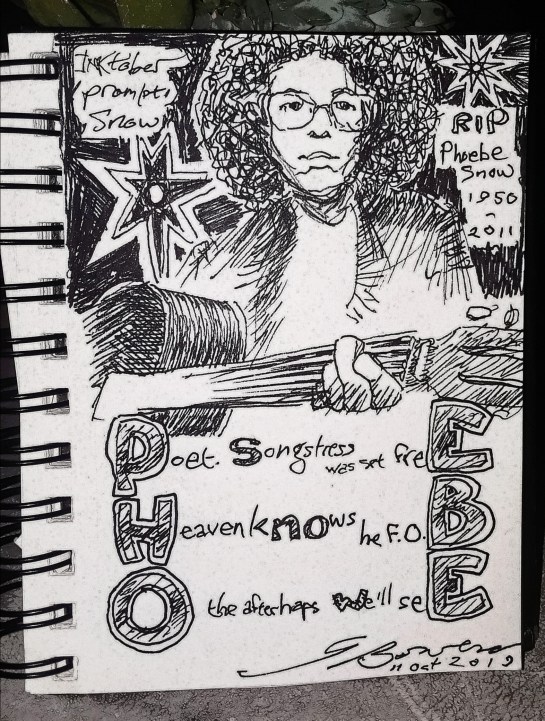 Inktober
prompt:
Snow
RIP
Phoebe
Snow
1950
-
2011
Poet. Songstress was set freE
Heaven knows he F.O.B
O the afterhaps We'll seE
11 Oct 2019